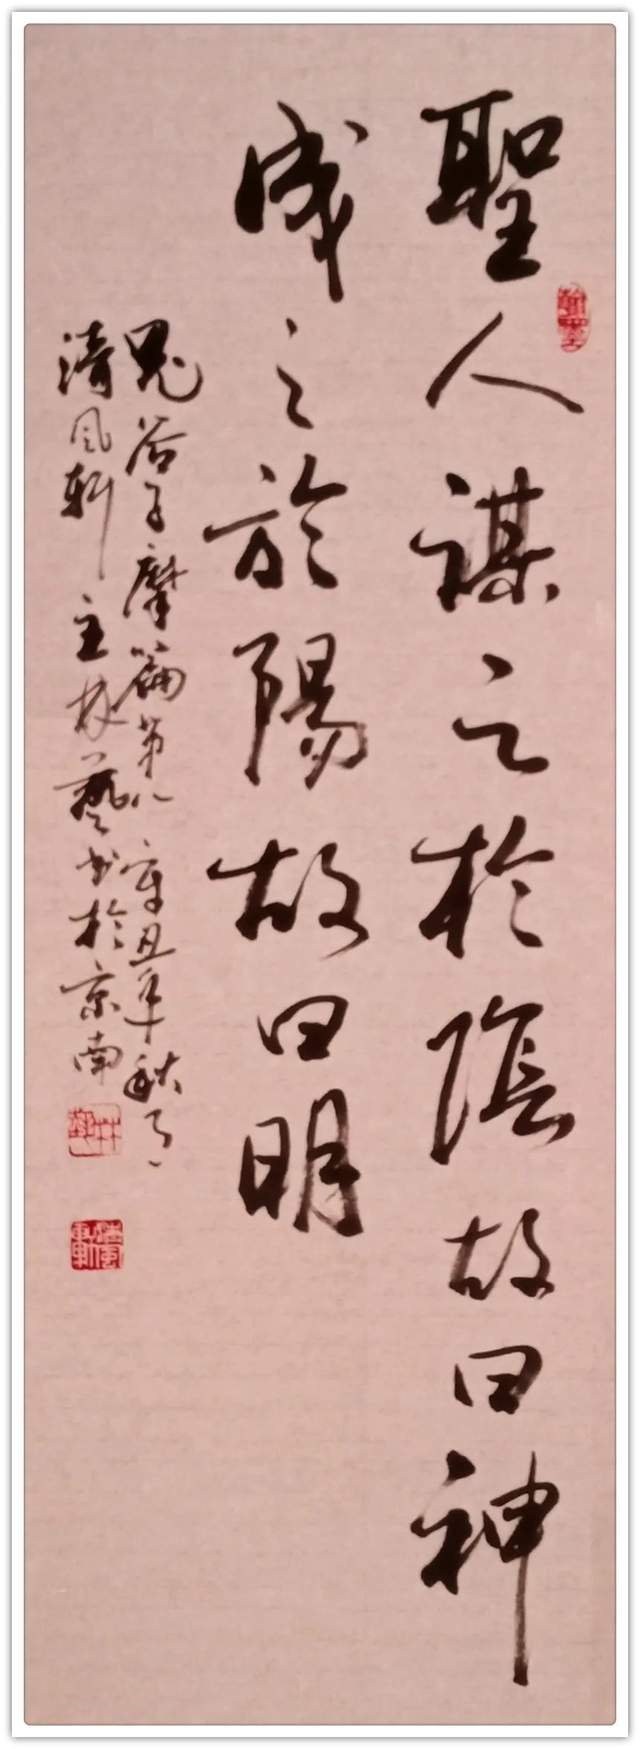 聖人謀之於陰故曰神
成之於陽故曰明
鬼谷子摩篇第八辛丑年秋月
清風軒主林藝书於京南
清風軒